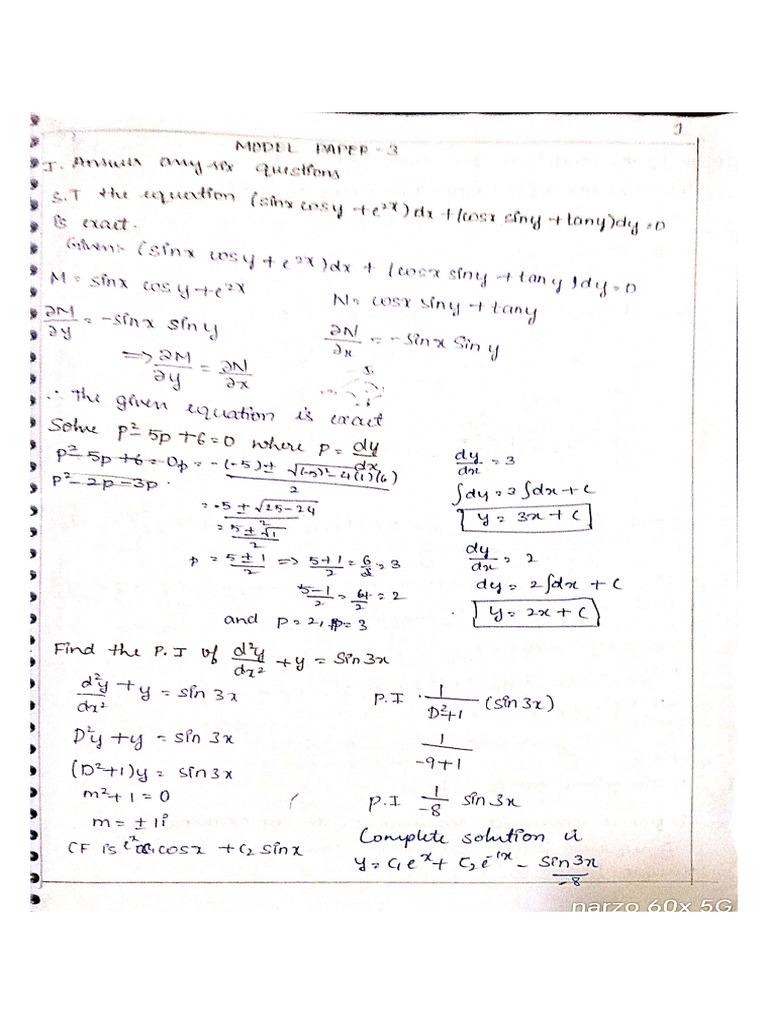 1
MODEL PAPER - 3
I. Answer any six questions
S.T the equation (sinx cosy + e^2x)dx + (cosx siny + tany)dy = 0
is exact.
Given:- (sinx cosy + e^2x)dx + (cosx siny + tany)dy = 0
M = sinx cosy + e^2x
N = cosx siny + tany
∂M/∂y = -sinx siny
∂N/∂x = -sinx siny
=> ∂M/∂y = ∂N/∂x
∴ the given equation is exact
Solve p² - 5p + 6 = 0 where p = dy/dx
p² - 5p + 6 = 0
p² - 2p - 3p
p = -(-5) ± √(-5)² - 4(1)(6) / 2
= -5 ± √25 - 24 / 2
= 5 ± √1 / 2
p = 5 ± 1 / 2 => 5+1/2 = 6/2 = 3
5-1/2 = 4/2 = 2
and p = 2, p = 3
dy/dx = 3
∫dy = 3∫dx + C
y = 3x + C
dy/dx = 2
dy = 2∫dx + C
y = 2x + C
Find the P.I of d²y/dx² + y = sin3x
d²y/dx² + y = sin 3x
D²y + y = sin 3x
(D²+1)y = sin 3x
m² + 1 = 0
m = ± 1i
CF is cosx + C2 sinx
P.I 1/D²+1 (sin 3x)
1/-9+1
P.I 1/-8 sin 3x
Complete solution is
y = C1 e^x + C2 e^-1x - sin3x/-8
narzo 60x 5G